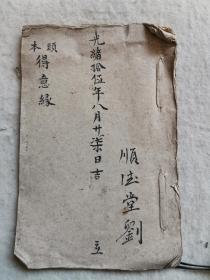 光緒拾伍年八月廿柒日吉立
順德堂劉
頭本
得意緣